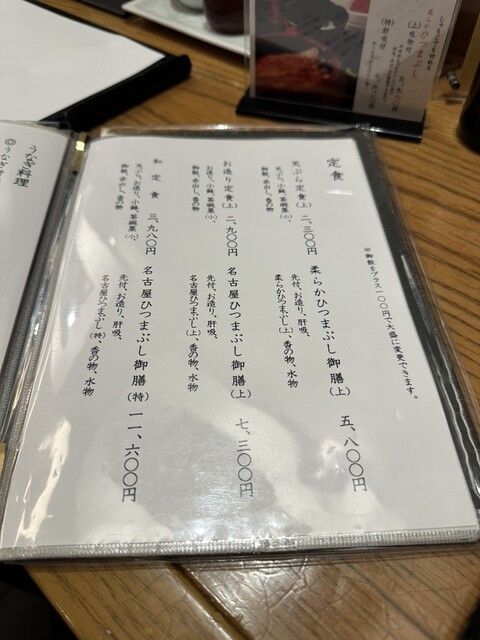 定食
※御飯をプラス一〇〇円で大盛に変更できます。
天ぷら定食(上) 二、三〇〇円
天ぷら、小鉢、茶碗蒸(小)、
御飯、赤出し、香の物
お造り定食(上) 二、九〇〇円
お造り、小鉢、茶碗蒸(小)、
御飯、赤出し、香の物
和定食 三、九八〇円
天ぷら、お造り、小鉢、茶碗蒸(小)、
御飯、赤出し、香の物
柔らかひつまぶし御膳(上) 五、八〇〇円
先付、お造り、肝吸、
柔らかひつまぶし(上)、香の物、水物
名古屋ひつまぶし御膳(上) 七、三〇〇円
先付、お造り、肝吸、
名古屋ひつまぶし(上)、香の物、水物
名古屋ひつまぶし御膳(特) 一一、六〇〇円
先付、お造り、肝吸、
名古屋ひつまぶし(特)、香の物、水物
うなぎ料理
◎うなぎ
柔らかひつまぶし
(上)吸物付
(特)肝吸付